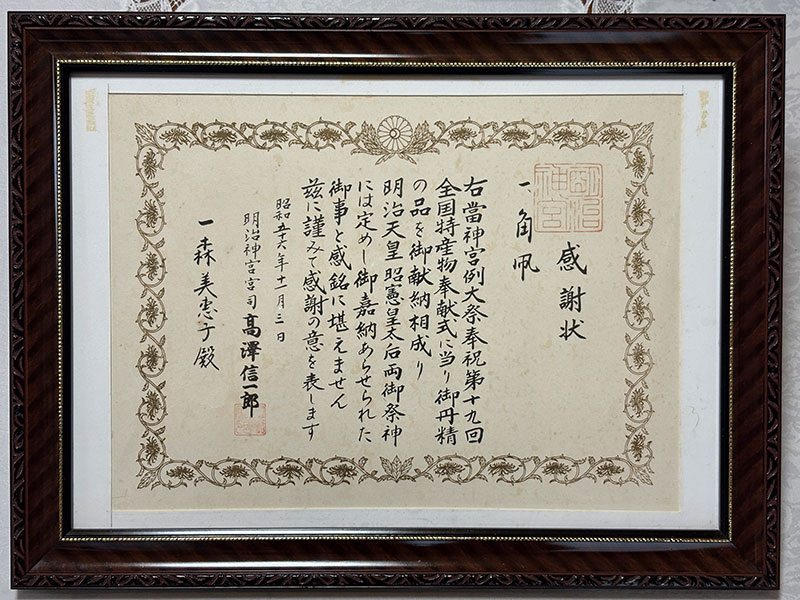 感謝状
明治神宮
一 角凧
右當神宮例大祭奉祝第十九回
全国特産物奉献式に当り御丹精
の品を御献納相成り
明治天皇昭憲皇太后両御祭神
には定めし御嘉納あらせられた
御事と感銘に堪えません
茲に謹みて感謝の意を表します
昭和五十六年十一月三日
明治神宮宮司 高澤信一郎
一森美恵子殿